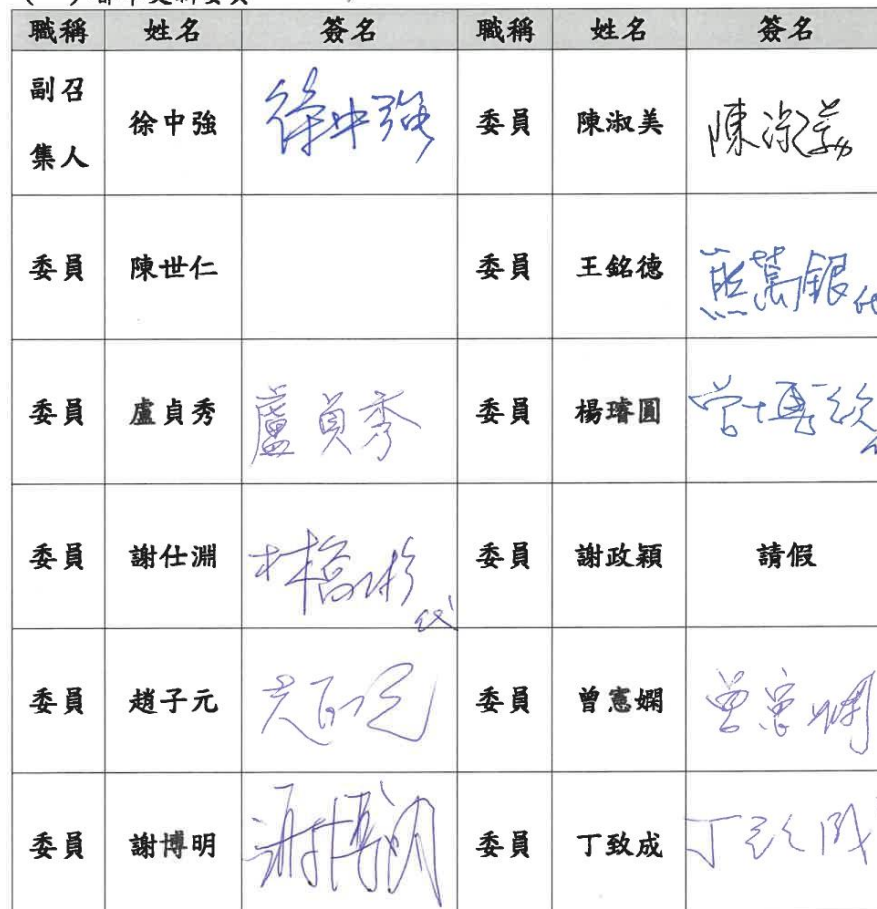 職稱 姓名 簽名 職稱 姓名 簽名
副召集人 徐中強 徐中強 委員 陳淑美 陳淑美
委員 陳世仁 委員 王銘德 熊萬銀代
委員 盧貞秀 盧貞秀 委員 楊璿圓
委員 謝仕淵 代 委員 謝政穎 請假
委員 趙子元 委員 曾憲嫻 曾憲嫻
委員 謝博明 謝博明 委員 丁致成 丁致成